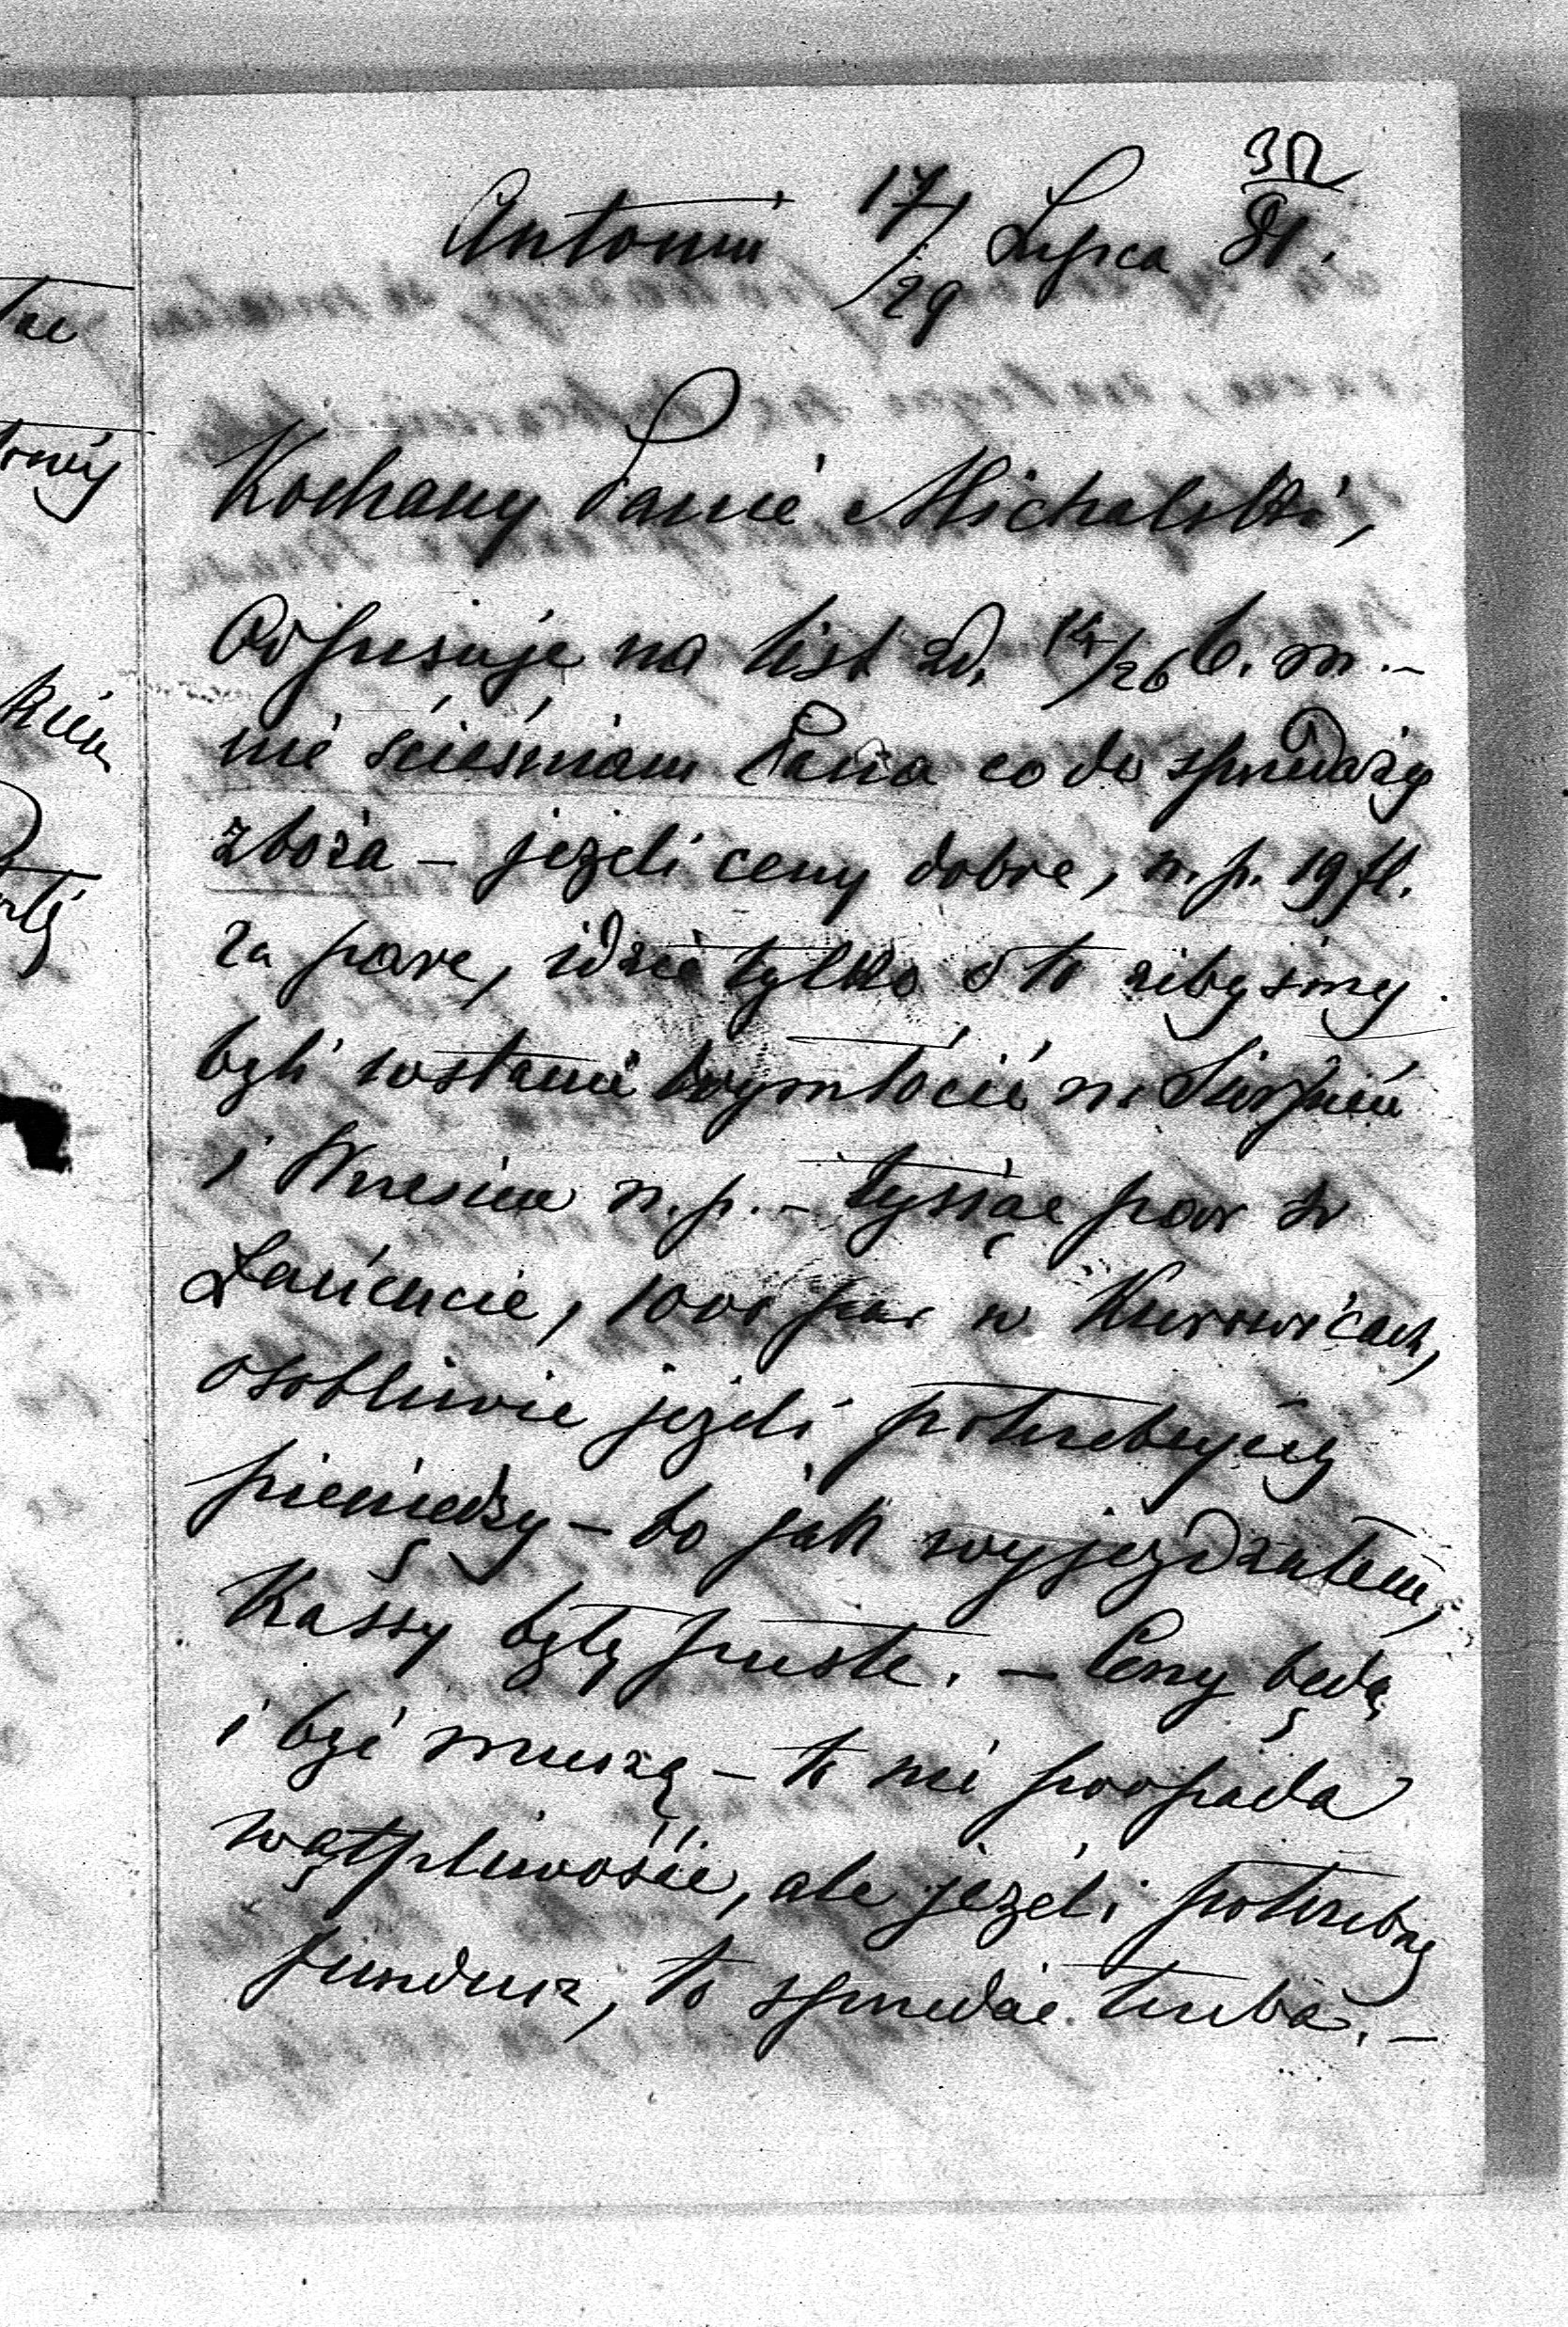 32
Antonin 17/29 Lipca 81.
Kochany Panie Michalski,
Odpisuję na list z d. 14/26 b. m. –
nie ścieśniam Pana co do sprzedaży
zboża – jeżeli ceny dobre, n. p. 19 fl.
za parę, idzie tylko o to żebyśmy
byli wstanie wymłócić w Sierpniu
i Wrześniu n. p. – tysiąc par w
Łańcucie, 1000 par w Kurowicach,
osobliwie jeżeli potrzebujecie
pieniędzy – bo jak wyjeżdżałem,
Kassy były puste. – Ceny będą
i być muszą – to nie podpada
wątpliwości, ale jeżeli potrzebny
fundusz, to sprzedać trzeba. –